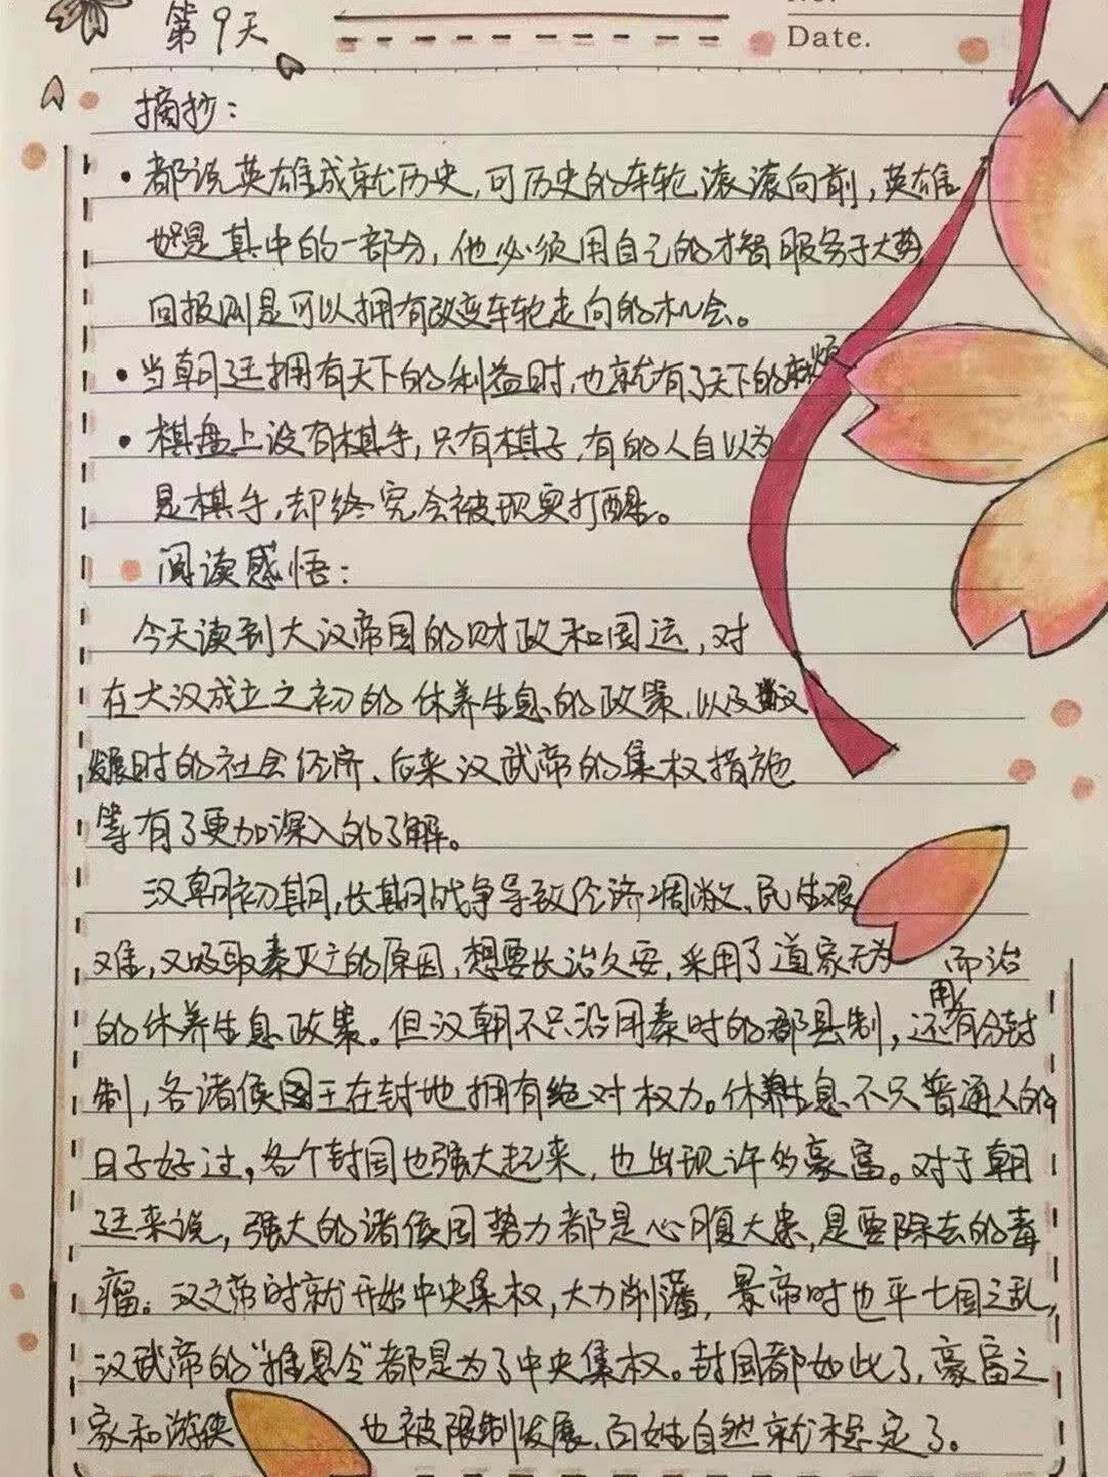 第9天
Date.
摘抄：
• 都说英雄成就历史，可历史的车轮滚滚向前，英雄
也是其中的一部分，他必须用自己的才智服务于大势，
回报则是可以拥有改变车轮走向的机会。
• 当朝廷拥有天下的利益时，也就有了天下的麻烦
• 棋盘上没有棋手，只有棋子，有的人自以为
是棋手，却终究会被现实打醒。
阅读感悟：
今天读到大汉帝国的财政和国运，对
在大汉成立之初的休养生息的政策，以及
发展时的社会经济、后来汉武帝的集权措施
等有了更加深入的了解。
汉朝初期，长期战争导致经济凋敝、民生艰
难，又吸取秦灭亡的原因，想要长治久安，采用了道家无为而治
的休养生息政策。但汉朝不只沿用秦时的郡县制，还有用分封
制，各诸侯国王在封地拥有绝对权力。休养生息不只普通人的
日子好过，各个封国也强大起来，也出现许多豪富。对于朝
廷来说，强大的诸侯国势力都是心腹大患，是要除去的毒
瘤。汉文帝时就开始中央集权，大力削藩，景帝时也平七国之乱，
汉武帝的“推恩令”都是为了中央集权。封国都如此了，豪富之
家和游侠也被限制发展，百姓自然就稳定了。